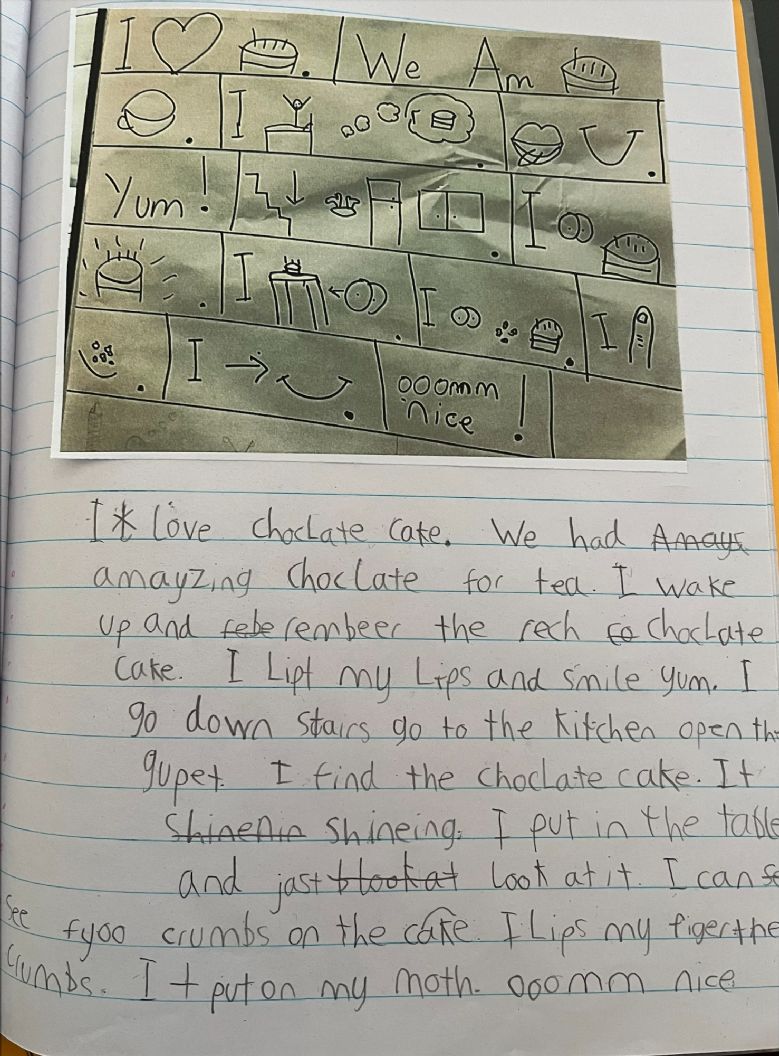 I .
We Am
. I .
.
Yum ! I
. I . I
. I
. I . ooomm
nice !
I love choclate cake. We had Amays
amayzing choclate for tea. I wake
up and rebe rembeer the rech co choclate
cake. I Lipt my Lips and smile yum. I
go down stairs go to the kitchen open th
gupet. I find the choclate cake. It
shinenin shineing. I put in the table
and jast blookat look at it. I can se
see fyoo crumbs on the cake. I Lips my figerthe
crumbs. I t put on my moth. ooomm nice